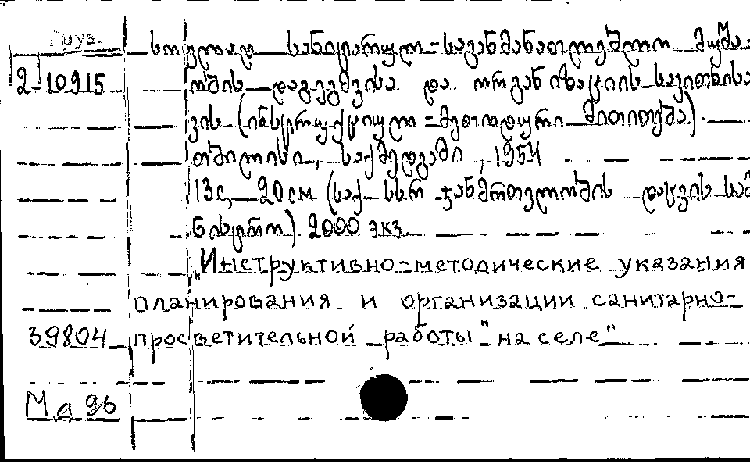 Груз.
სოფლად სანიტარულ-საგანმანათლებლო მუშა-
2-10915 ობის დაგეგმვისა და ორგანიზაციის საკითხისა
თვის (ინსტრუქციულ-მეთოდური მითითება).
თბილისი, საქმედგამი, 1954
13с, 20см (საქ. სსრ ჯანმრთელობის დაცვის სამ
ნისტრო) 2000 экз.
„Инструктивно-методические указания
планирования и организации санитарно-
39804 просветительной работы "на селе"
Мд 96